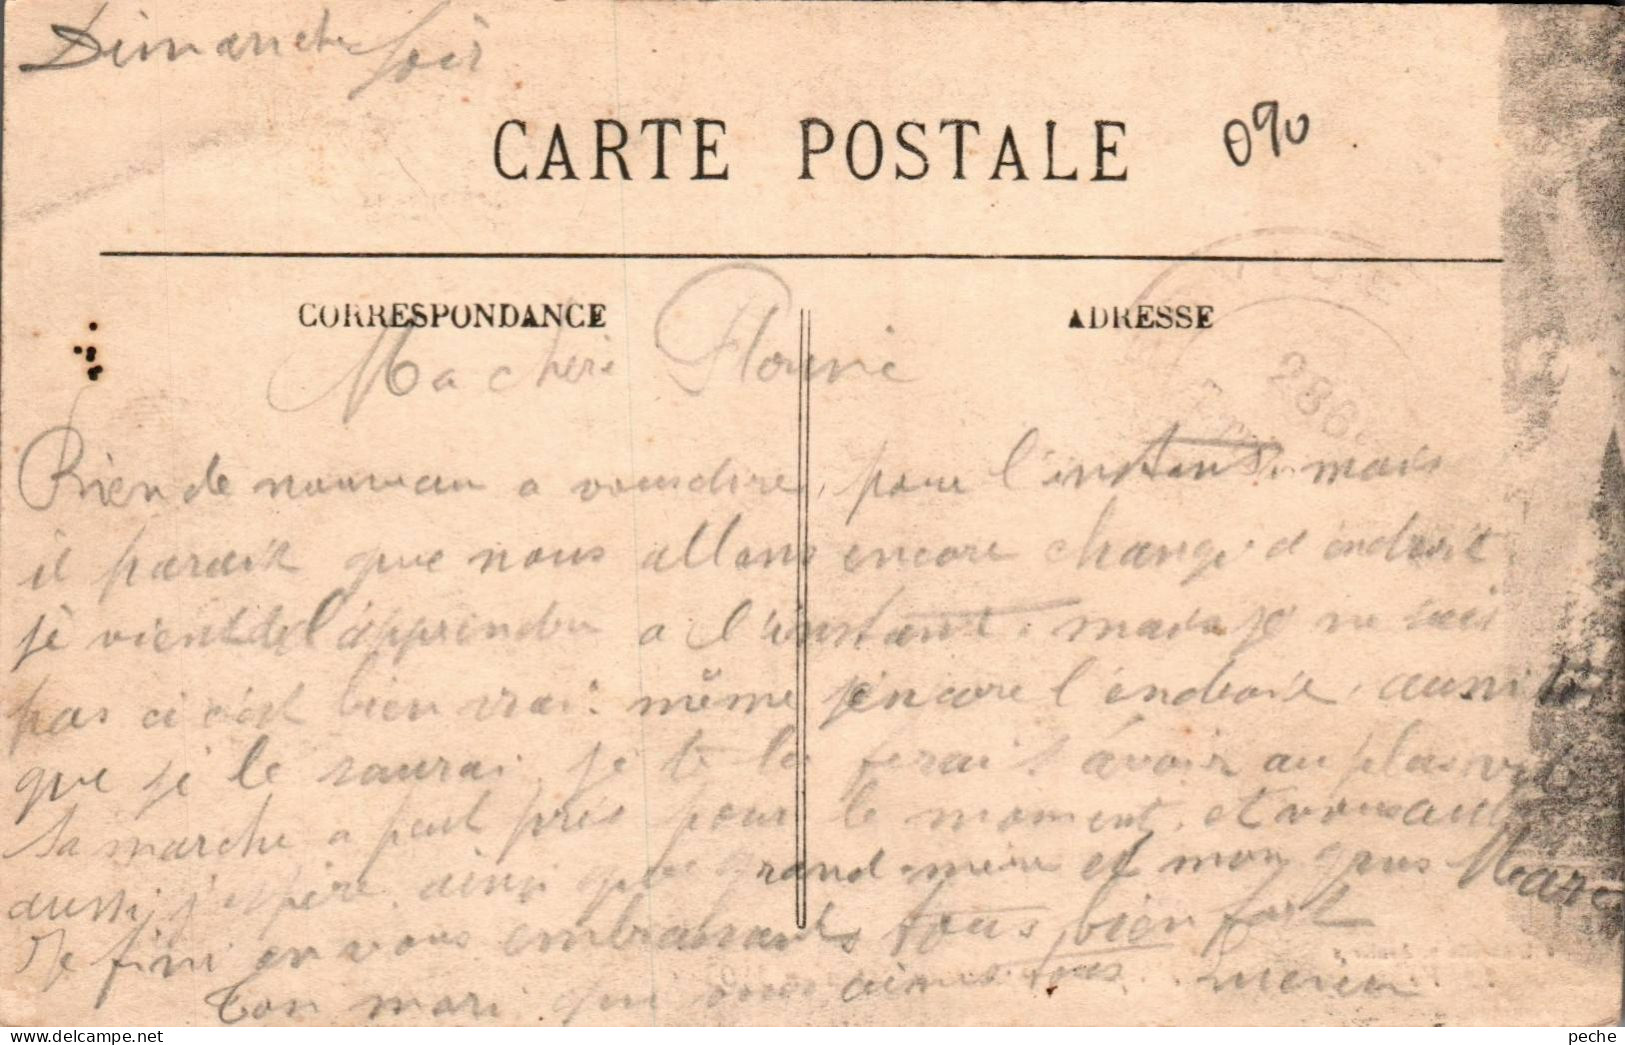 Dimanche soir
CARTE POSTALE
090
CORRESPONDANCE
ADRESSE
Ma cheri
Rien de nouveau a vous dire, pour l'instant, mais
il parait que nous allons encore change d'endroit
je vient de l'apprendre a l'instant. mais je ne sais
pas ci c'est bien vrai. même encore l'endroit, aussitôt
que je le saurai je te le ferai savoir au plus vite
sa marche a peut près pour le moment, et vous autre
aussi, j'espère, ainsi que grand-mère et mon gros Marc
Je fini en vous embrassants tous bien fort
Ton mari qui vous aimes tous Lucien
peche